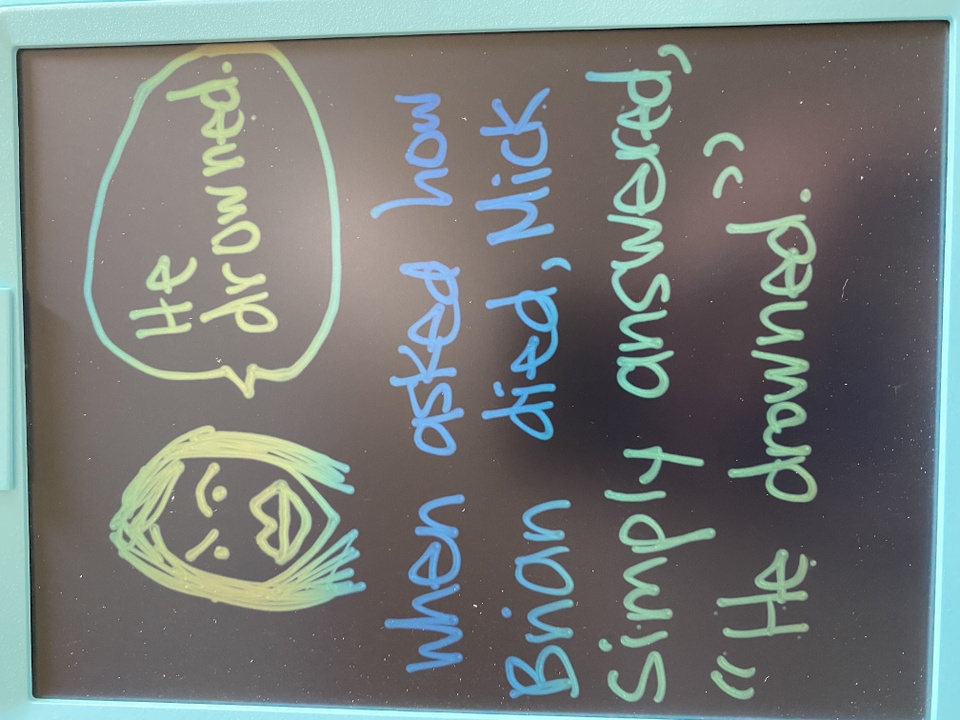 He
drowned.
When asked how
Brian died, Nick
simply answered,
"He drowned."